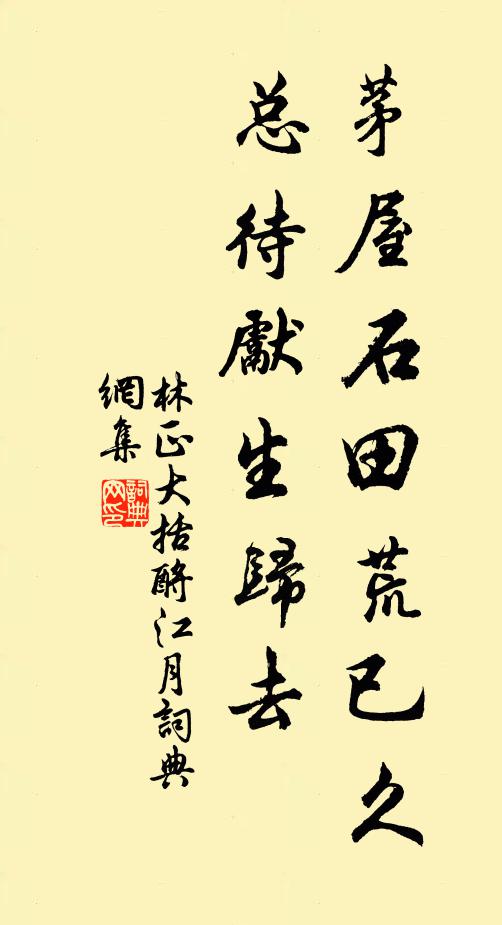 茅屋石田荒已久
总待獻生歸去
林正大括酹江月詞典
網集
詞典
网印